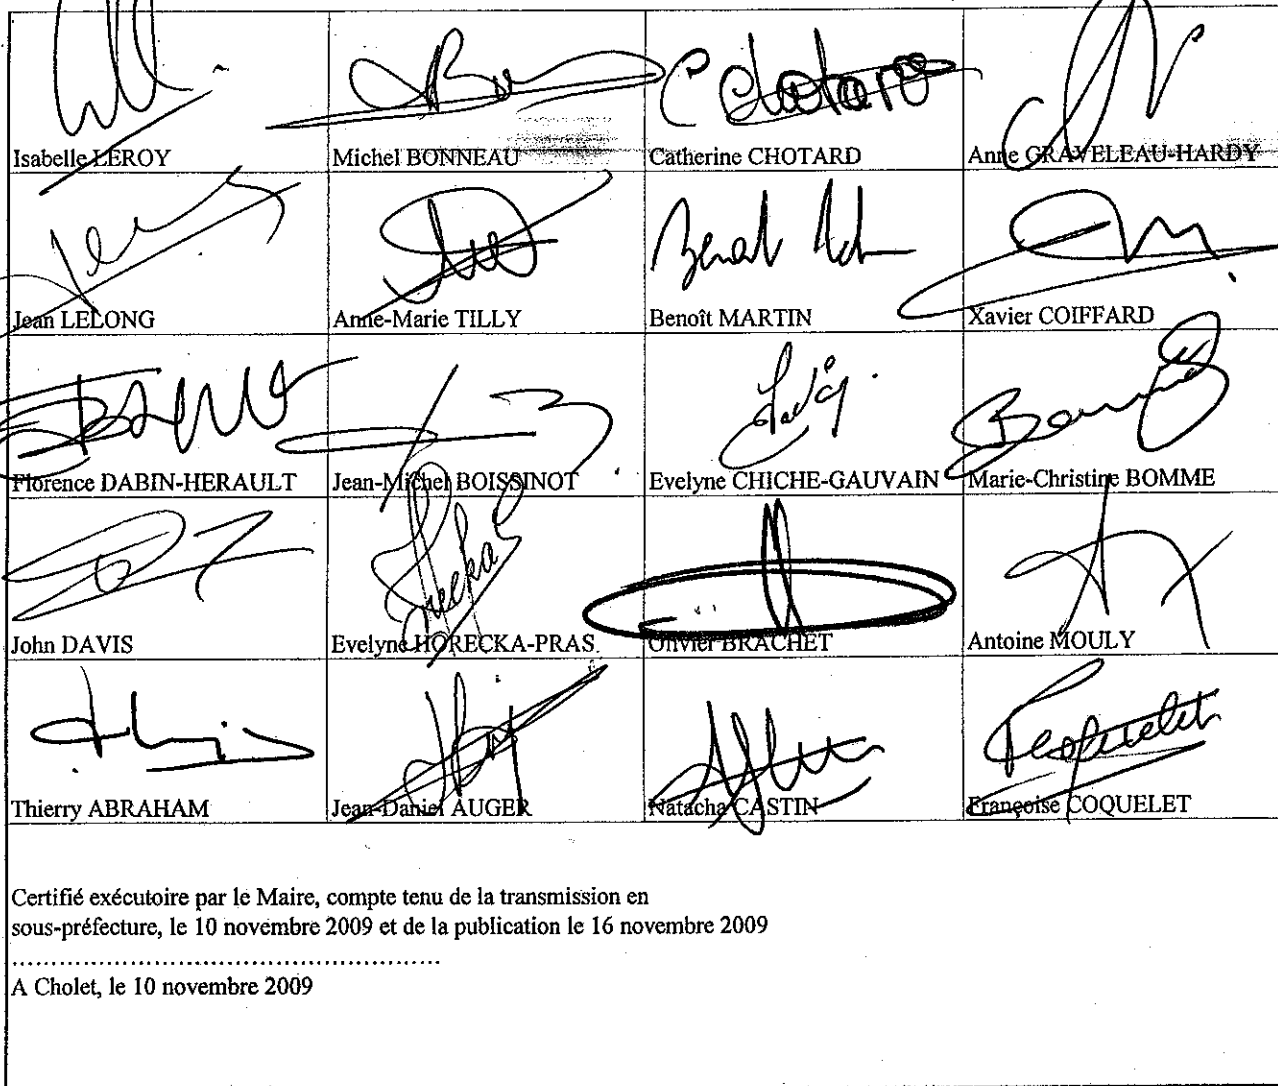 Isabelle LEROY
Michel BONNEAU
Catherine CHOTARD
Anne GRAVELEAU-HARDY
Jean LELONG
Anne-Marie TILLY
Benoît MARTIN
Xavier COIFFARD
Florence DABIN-HERAULT
Jean-Michel BOISSINOT
Evelyne CHICHE-GAUVAIN
Marie-Christine BOMME
John DAVIS
Evelyne HORECKA-PRAS
Olivier BRACHET
Antoine MOULY
Thierry ABRAHAM
Jean-Daniel AUGER
Natacha CASTIN
Françoise COQUELET
Certifié exécutoire par le Maire, compte tenu de la transmission en
sous-préfecture, le 10 novembre 2009 et de la publication le 16 novembre 2009
......................................................
A Cholet, le 10 novembre 2009